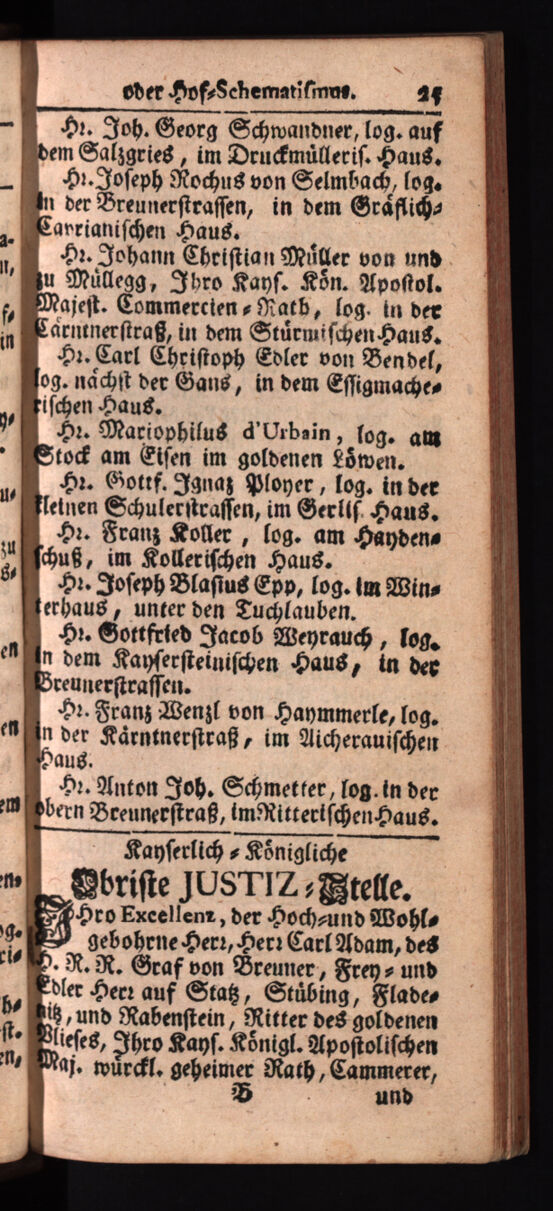 oder Hof-Schematismus. 25
Hr. Joh. Georg Schwandner, log. auf
dem Salzgries, im Druckmülleris. Haus.
Hr. Joseph Rochus von Selmbach, log.
in der Breunerstrassen, in dem Gräflich-
Cavrianischen Haus.
Hr. Johann Christian Müller von und
zu Müllegg, Ihro Kays. Kön. Apostol.
Majest. Commercien-Rath, log. in der
Cärntnerstraß, in dem Stürmischen Haus.
Hr. Carl Christoph Edler von Bendel,
log. nächst der Gans, in dem Essigmache-
rischen Haus.
Hr. Mariophilus d'Urbain, log. am
Stock am Eisen im goldenen Löwen.
Hr. Gottf. Ignaz Ployer, log. in der
kleinen Schulerstrassen, im Gerlis. Haus.
Hr. Franz Koller, log. am Hayden-
schuß, im Kollerischen Haus.
Hr. Joseph Blasius Epp, log. im Win-
terhaus, unter den Tuchlauben.
Hr. Gottfried Jacob Weyrauch, log.
in dem Kaysersteinischen Haus, in der
Breunerstrassen.
Hr. Franz Wenzl von Haymmerle, log.
in der Kärntnerstraß, im Aicherauischen
Haus.
Hr. Anton Joh. Schmetter, log. in der
obern Breunerstraß, im Ritterischen Haus.
Kayserlich-Königliche
Obriste JUSTIZ-Stelle.
IHro Excellenz, der Hoch- und Wohl-
gebohrne Herr, Herr Carl Adam, des
H. R. R. Graf von Breuner, Frey- und
Edler Herr auf Statz, Stübing, Flade-
nitz, und Rabenstein, Ritter des goldenen
Vlieses, Ihro Kays. Königl. Apostolischen
Maj. würckl. geheimer Rath, Cammerer,
B und